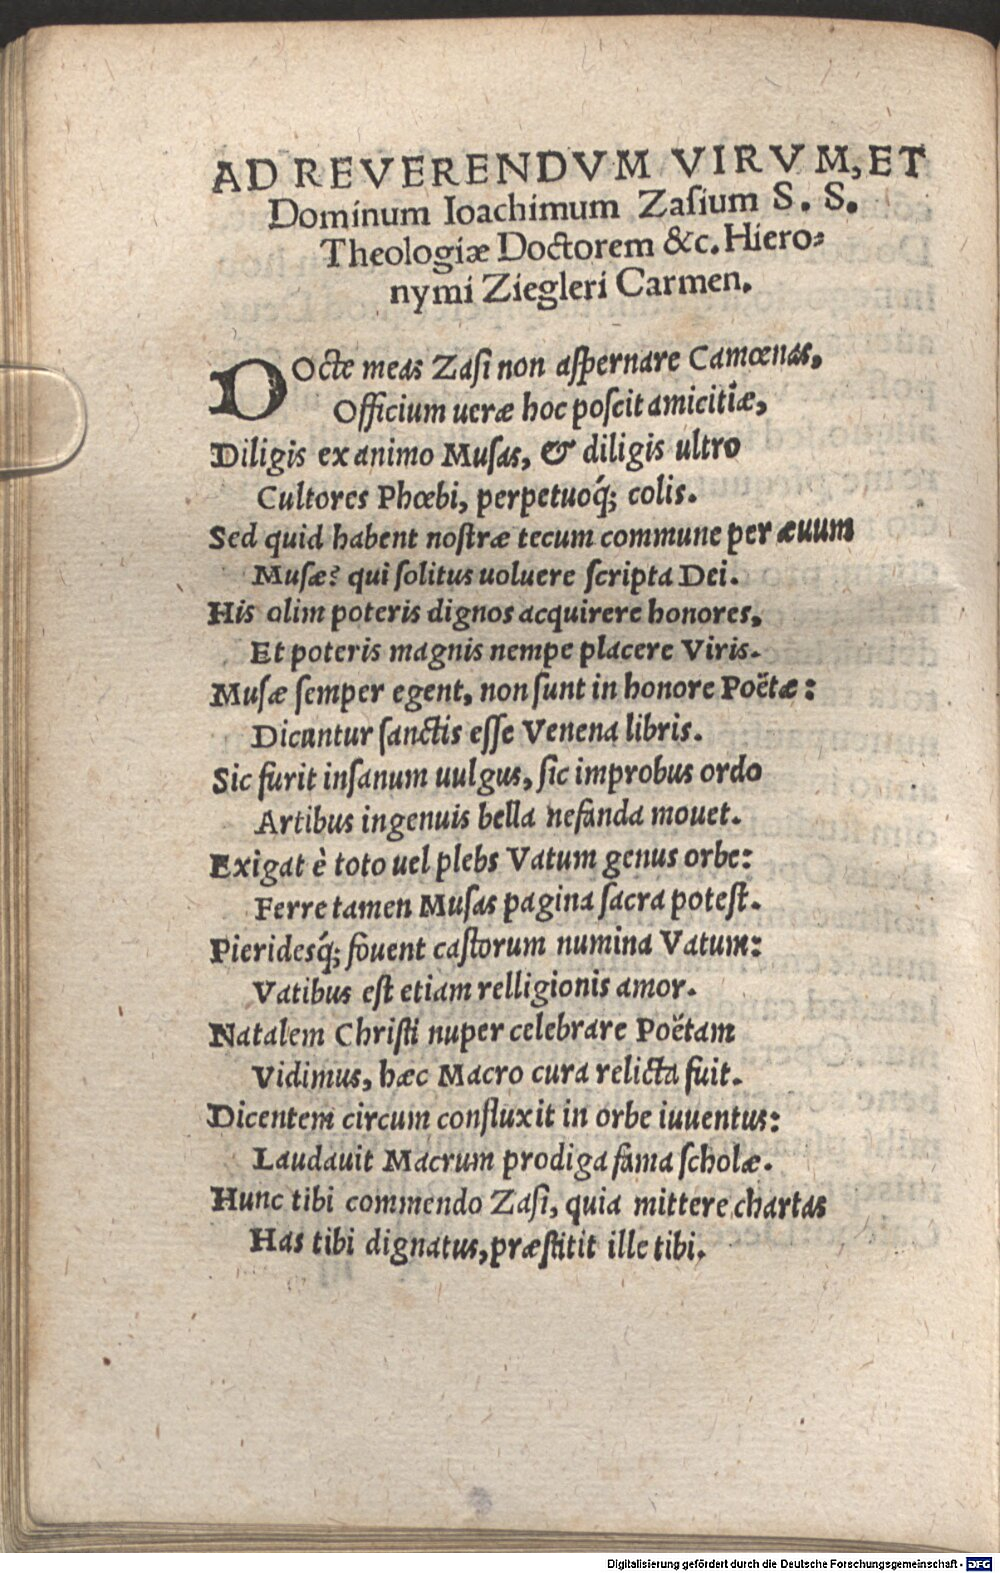 AD REVERENDVM VIRVM, ET
Dominum Ioachimum Zasium S. S.
Theologiæ Doctorem &c. Hiero⸗
nymi Ziegleri Carmen.
DOcte meas Zaſi non aſpernare Camœnas,
Officium ueræ hoc poſcit amicitiæ,
Diligis ex animo Muſas, & diligis ultro
Cultores Phœbi, perpetuoq́; colis.
Sed quid habent noſtræ tecum commune per æuum
Muſæ? qui ſolitus uoluere ſcripta Dei.
His olim poteris dignos acquirere honores,
Et poteris magnis nempe placere Viris.
Muſæ ſemper egent, non ſunt in honore Poëtæ:
Dicuntur ſanctis eſſe Venena libris.
Sic furit inſanum uulgus, ſic improbus ordo
Artibus ingenuis bella nefanda mouet.
Exigat è toto uel plebs Vatum genus orbe:
Ferre tamen Muſas pagina ſacra poteſt.
Pieridesq́; fouent caſtorum numina Vatum:
Vatibus eſt etiam relligionis amor.
Natalem Chriſti nuper celebrare Poëtam
Vidimus, hæc Macro cura relicta fuit.
Dicentem circum confluxit in orbe iuuentus:
Laudauit Macrum prodiga fama ſcholæ.
Hunc tibi commendo Zaſi, quia mittere chartas
Has tibi dignatus, præſtitit ille tibi.
Digitalisierung gefördert durch die Deutsche Forschungsgemeinschaft - DFG